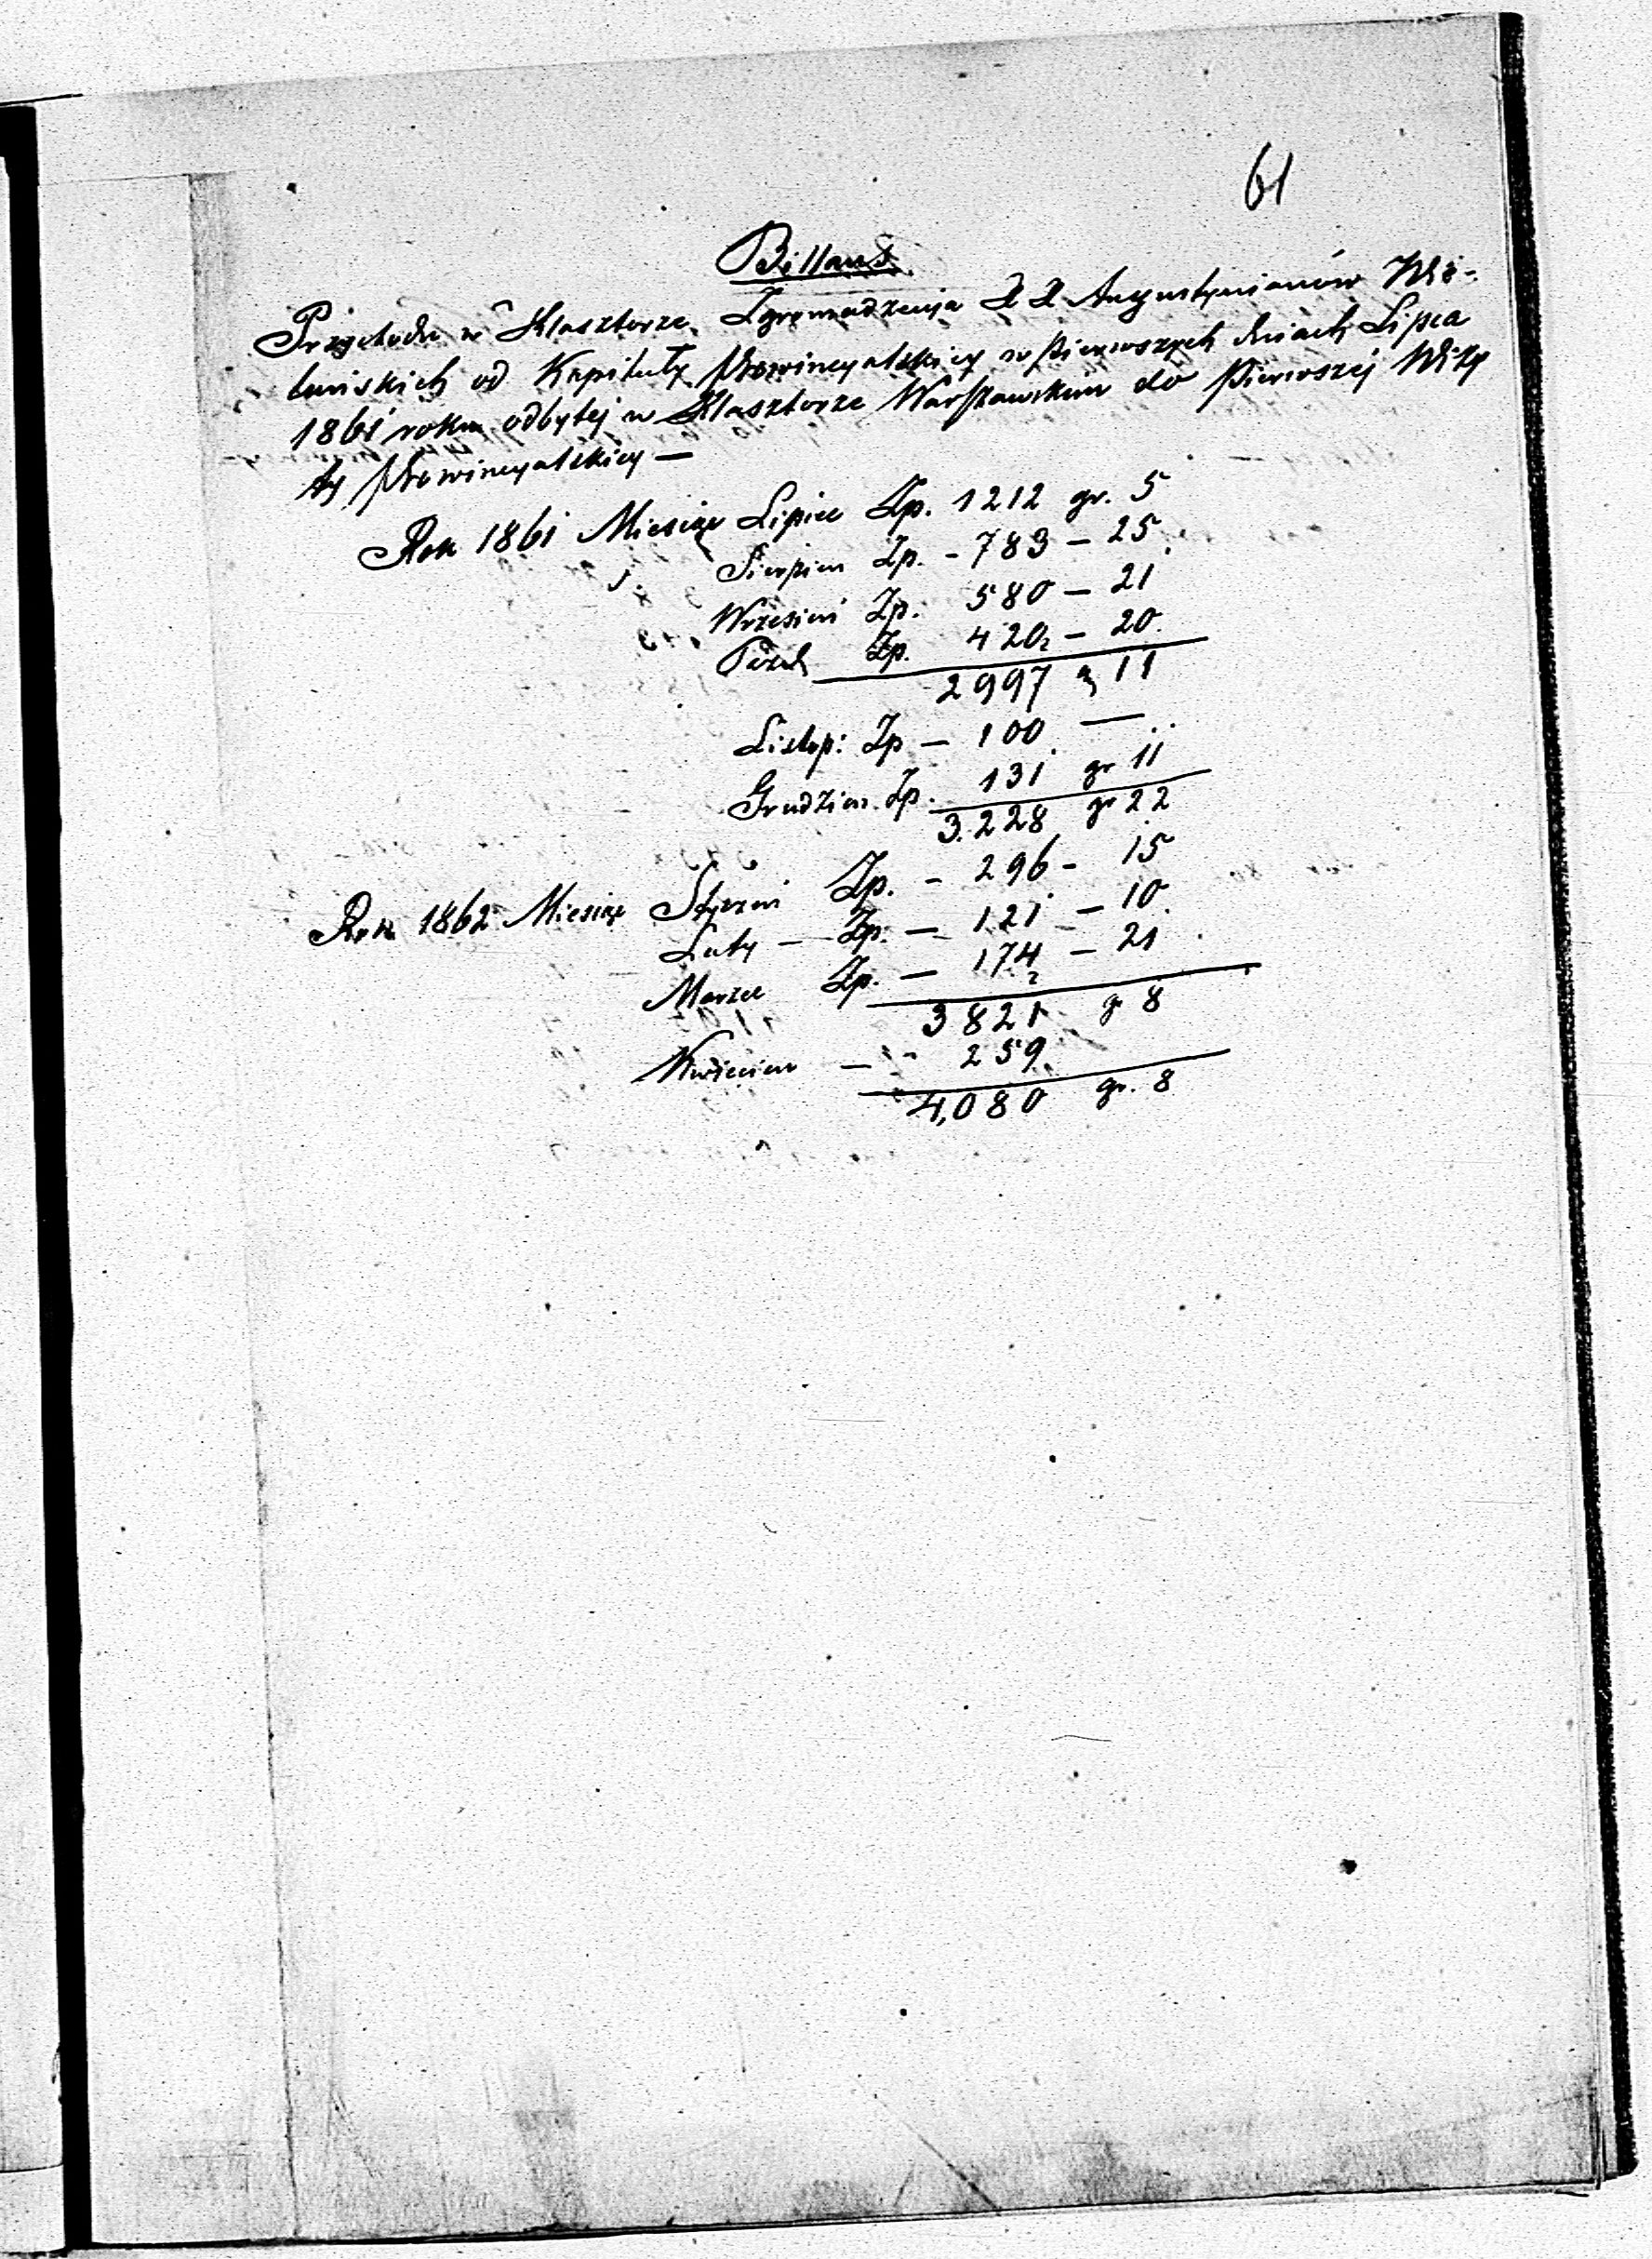 61
Billans
Przychodu w Klasztorze Zgromadzenia XX Augustynianów Wie-
luńskich od Kapituły Prowincyalskiey w pierwszych dniach Lipca
1861 roku odbytej w Klasztorze Warszawskim do Pierwszéj Wizy
ty Prowincyalskiey —
Rok 1861 Miesiąc Lipiec Zp. 1212 gr. 5
Sierpien Zp. - 783 - 25
Wrzesień Zp. 580 - 21
Pazd Zp. 420 - 20
2997 11
Listop: Zp - 100 —
Grudzien Zp. 131 gr 11
3.228 gr 22
Rok 1862 Miesiąc Styczeń Zp. - 296 - 15
Luty - Zp. - 121 - 10
Marzec Zp. - 174 - 21
3821 gr 8
Kwiecien — - 259
4,080 gr. 8